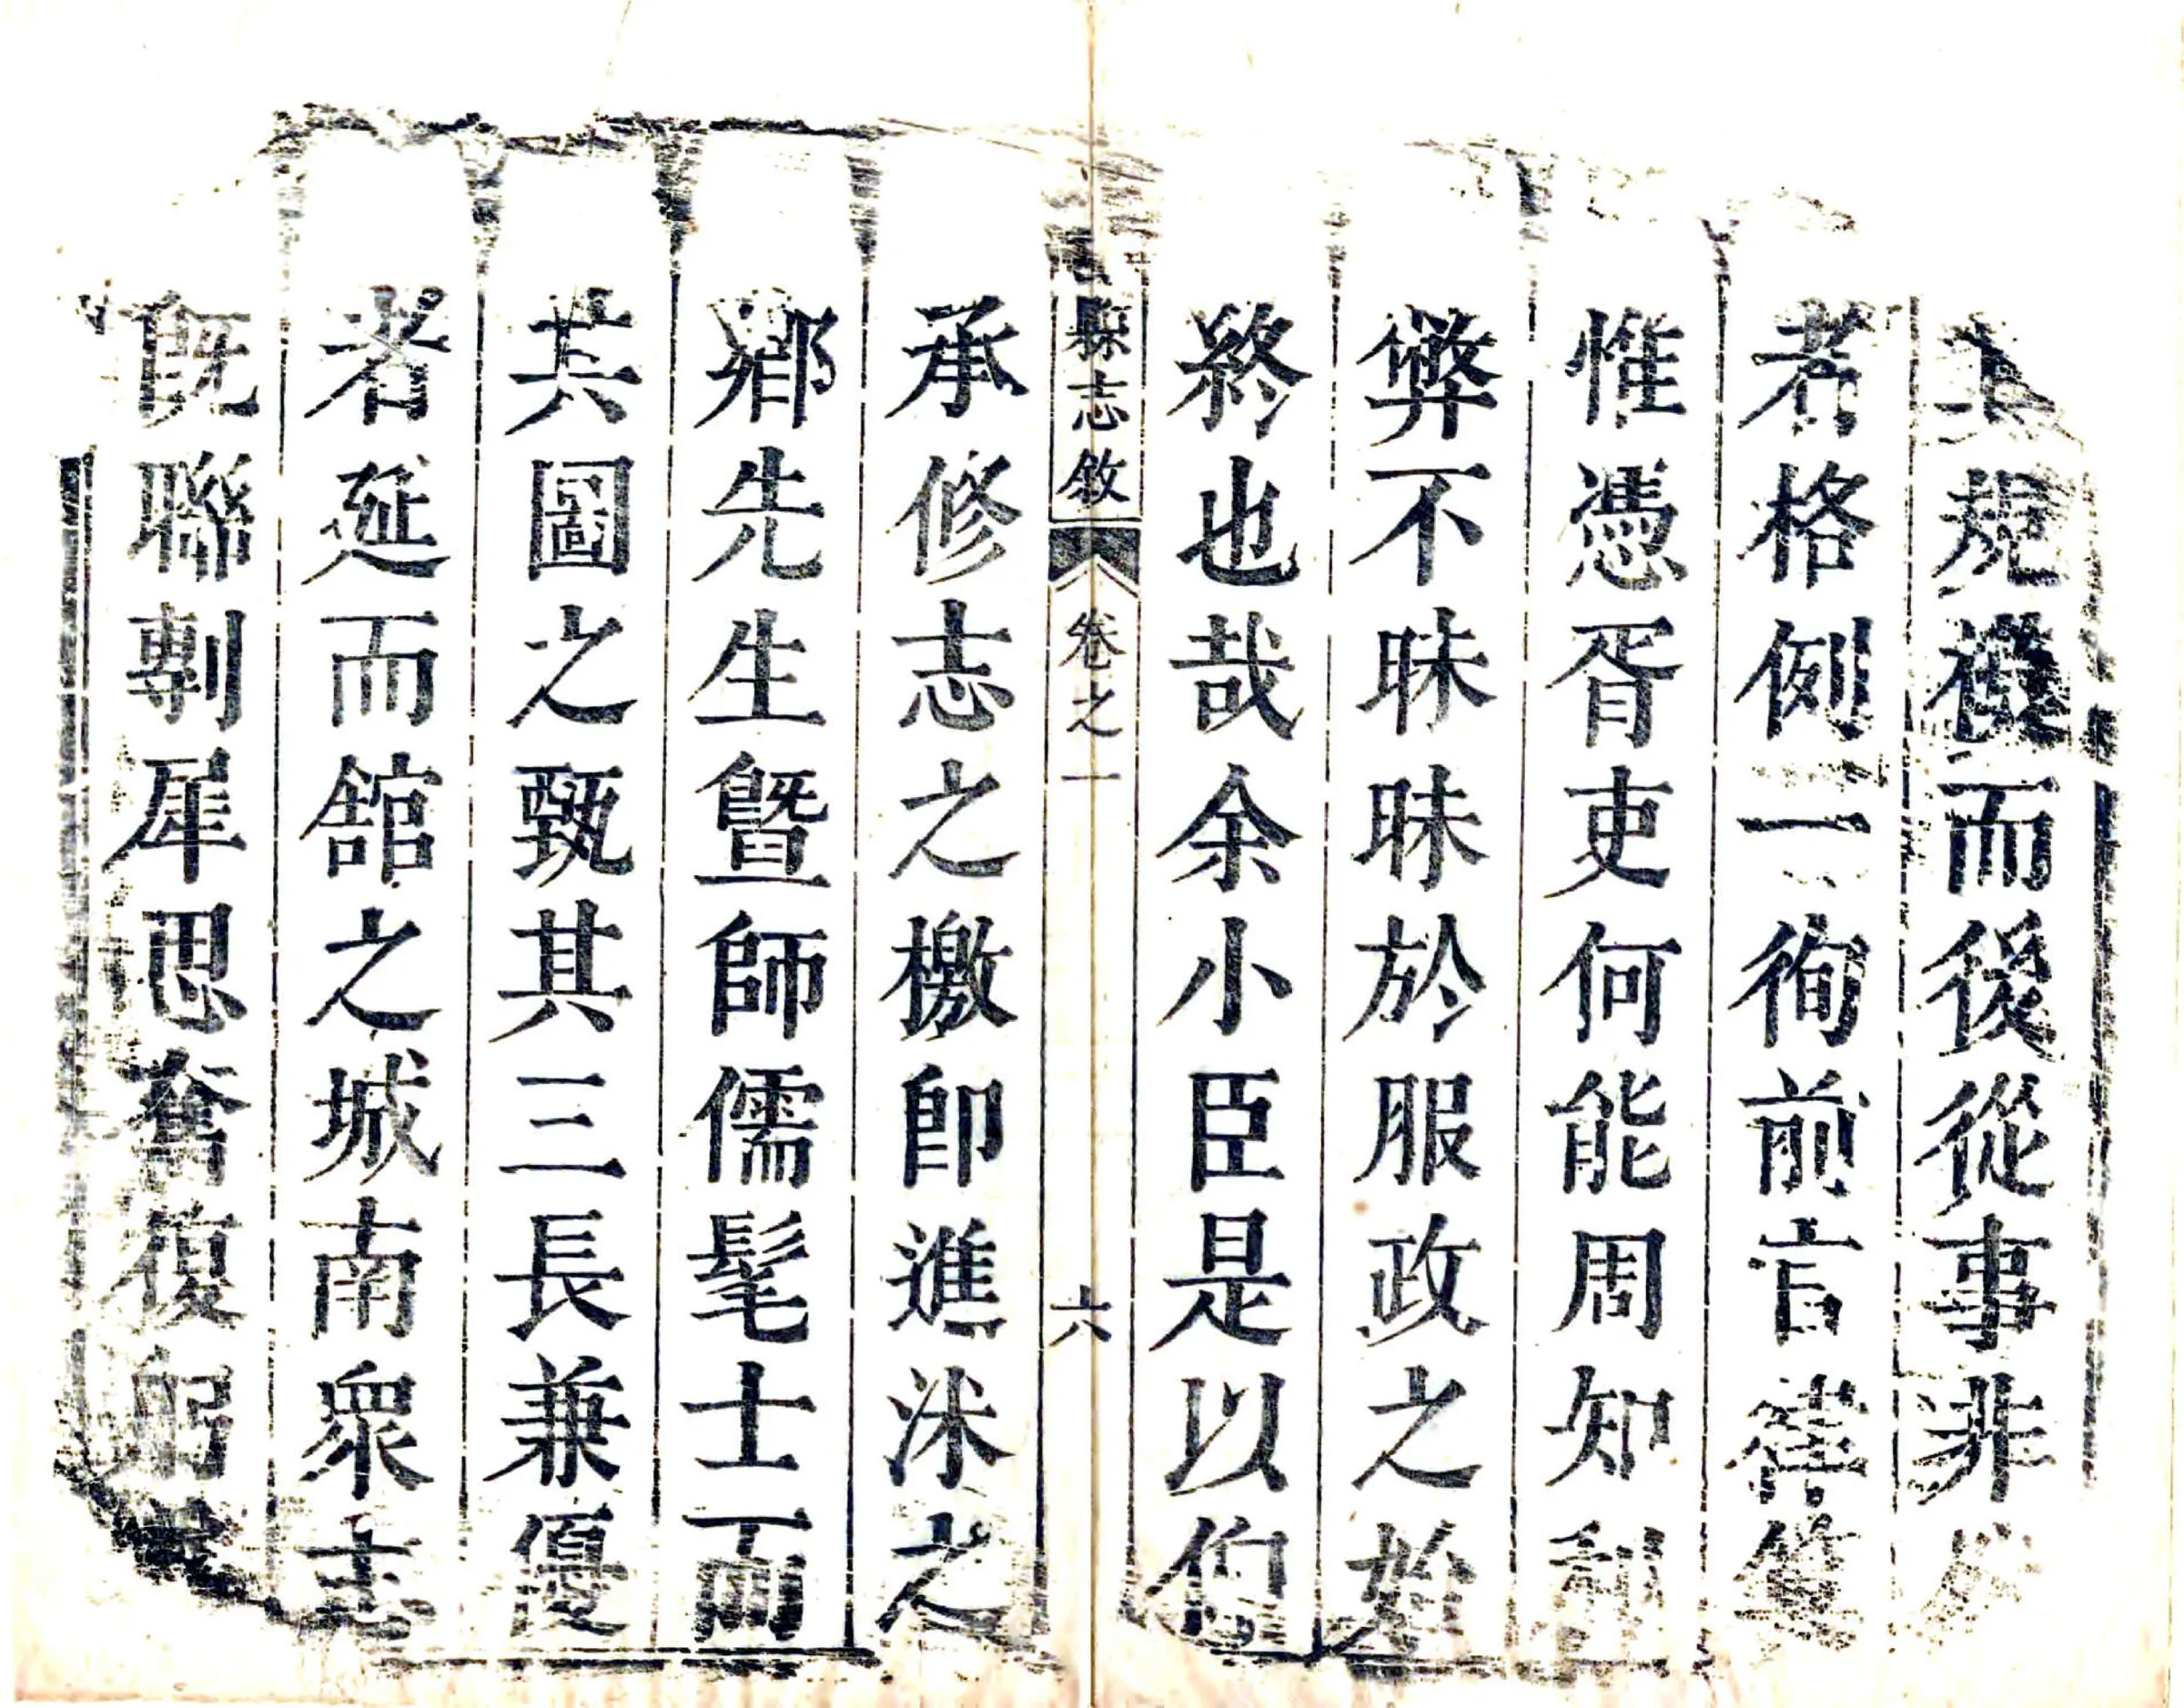 規模而後從事非
者格例一徇前官
惟憑胥吏何能周知利
弊不昧昧於服政之始
終也哉余小臣是以仰
縣志敘 卷之一 六
承修志之檄即進洣之
鄉先生暨師儒髦士而
共圖之甄其三長兼優
者延而舘之城南眾志
既聯剸犀思奮復躬